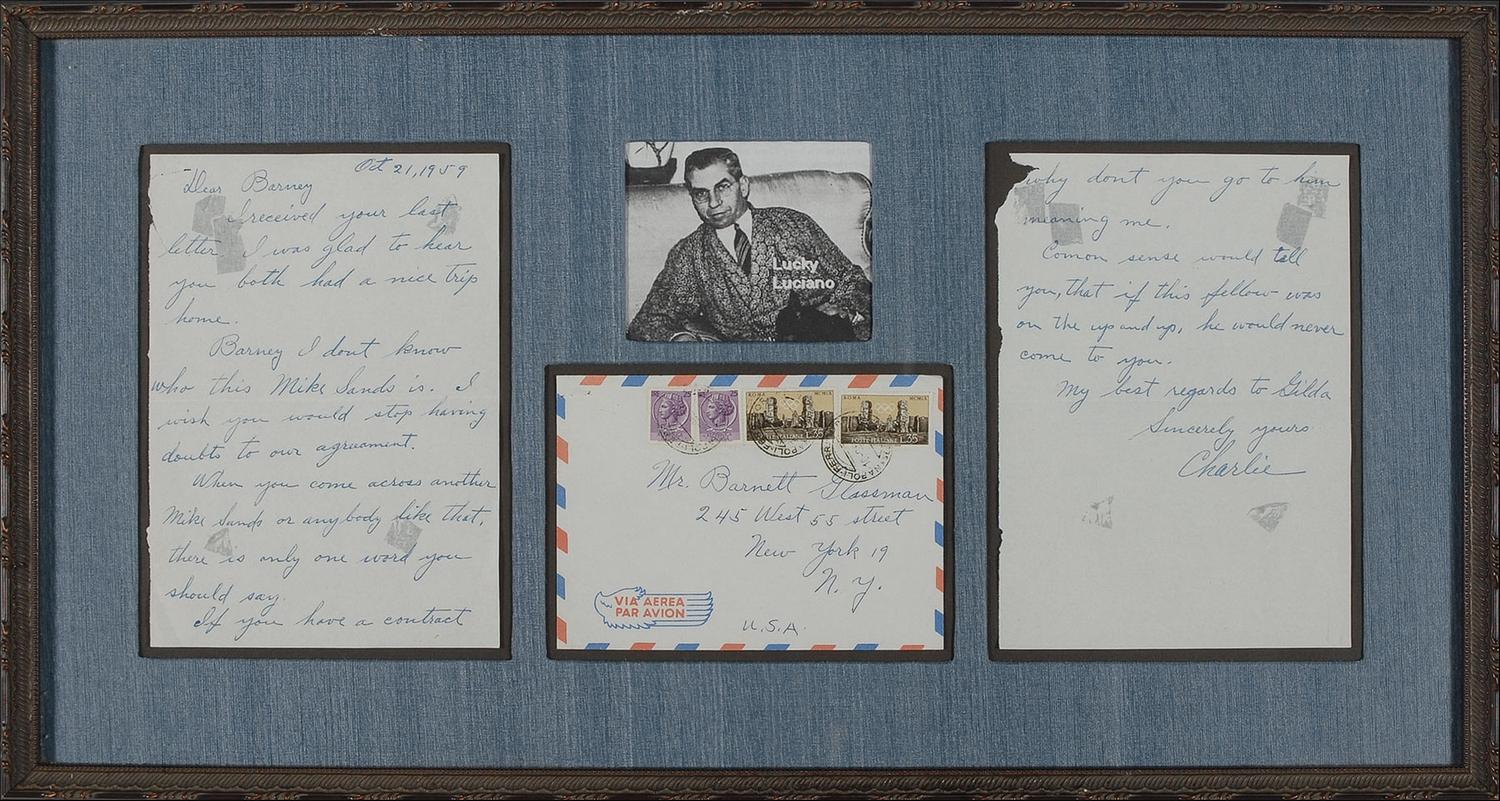 Oct 21, 1959
Dear Barney
I received your last
letter I was glad to hear
you both had a nice trip
home.
Barney I dont know
who this Mike Sands is. I
wish you would stop having
doubts to our agreament.
When you come across another
Mike Sands or anybody like that,
there is only one word you
should say.
If you have a contract
Lucky
Luciano
25 25
ROMA MCMLX
POSTE ITALIANE L.35
ROMA MCMLX
POSTE ITALIANE L.35
Mr. Barnett Glassman
245 West 55 street
New York 19
N.Y.
VIA AEREA
PAR AVION
U.S.A.
why dont you go to him
meaning me.
Comon sense would tell
you, that if this fellow was
on the up and up, he would never
come to you.
My best regards to Gilda
Sincerely yours
Charlie